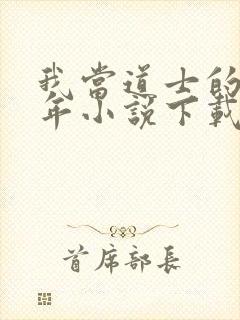 我當道士的
年小說下載
首席部長